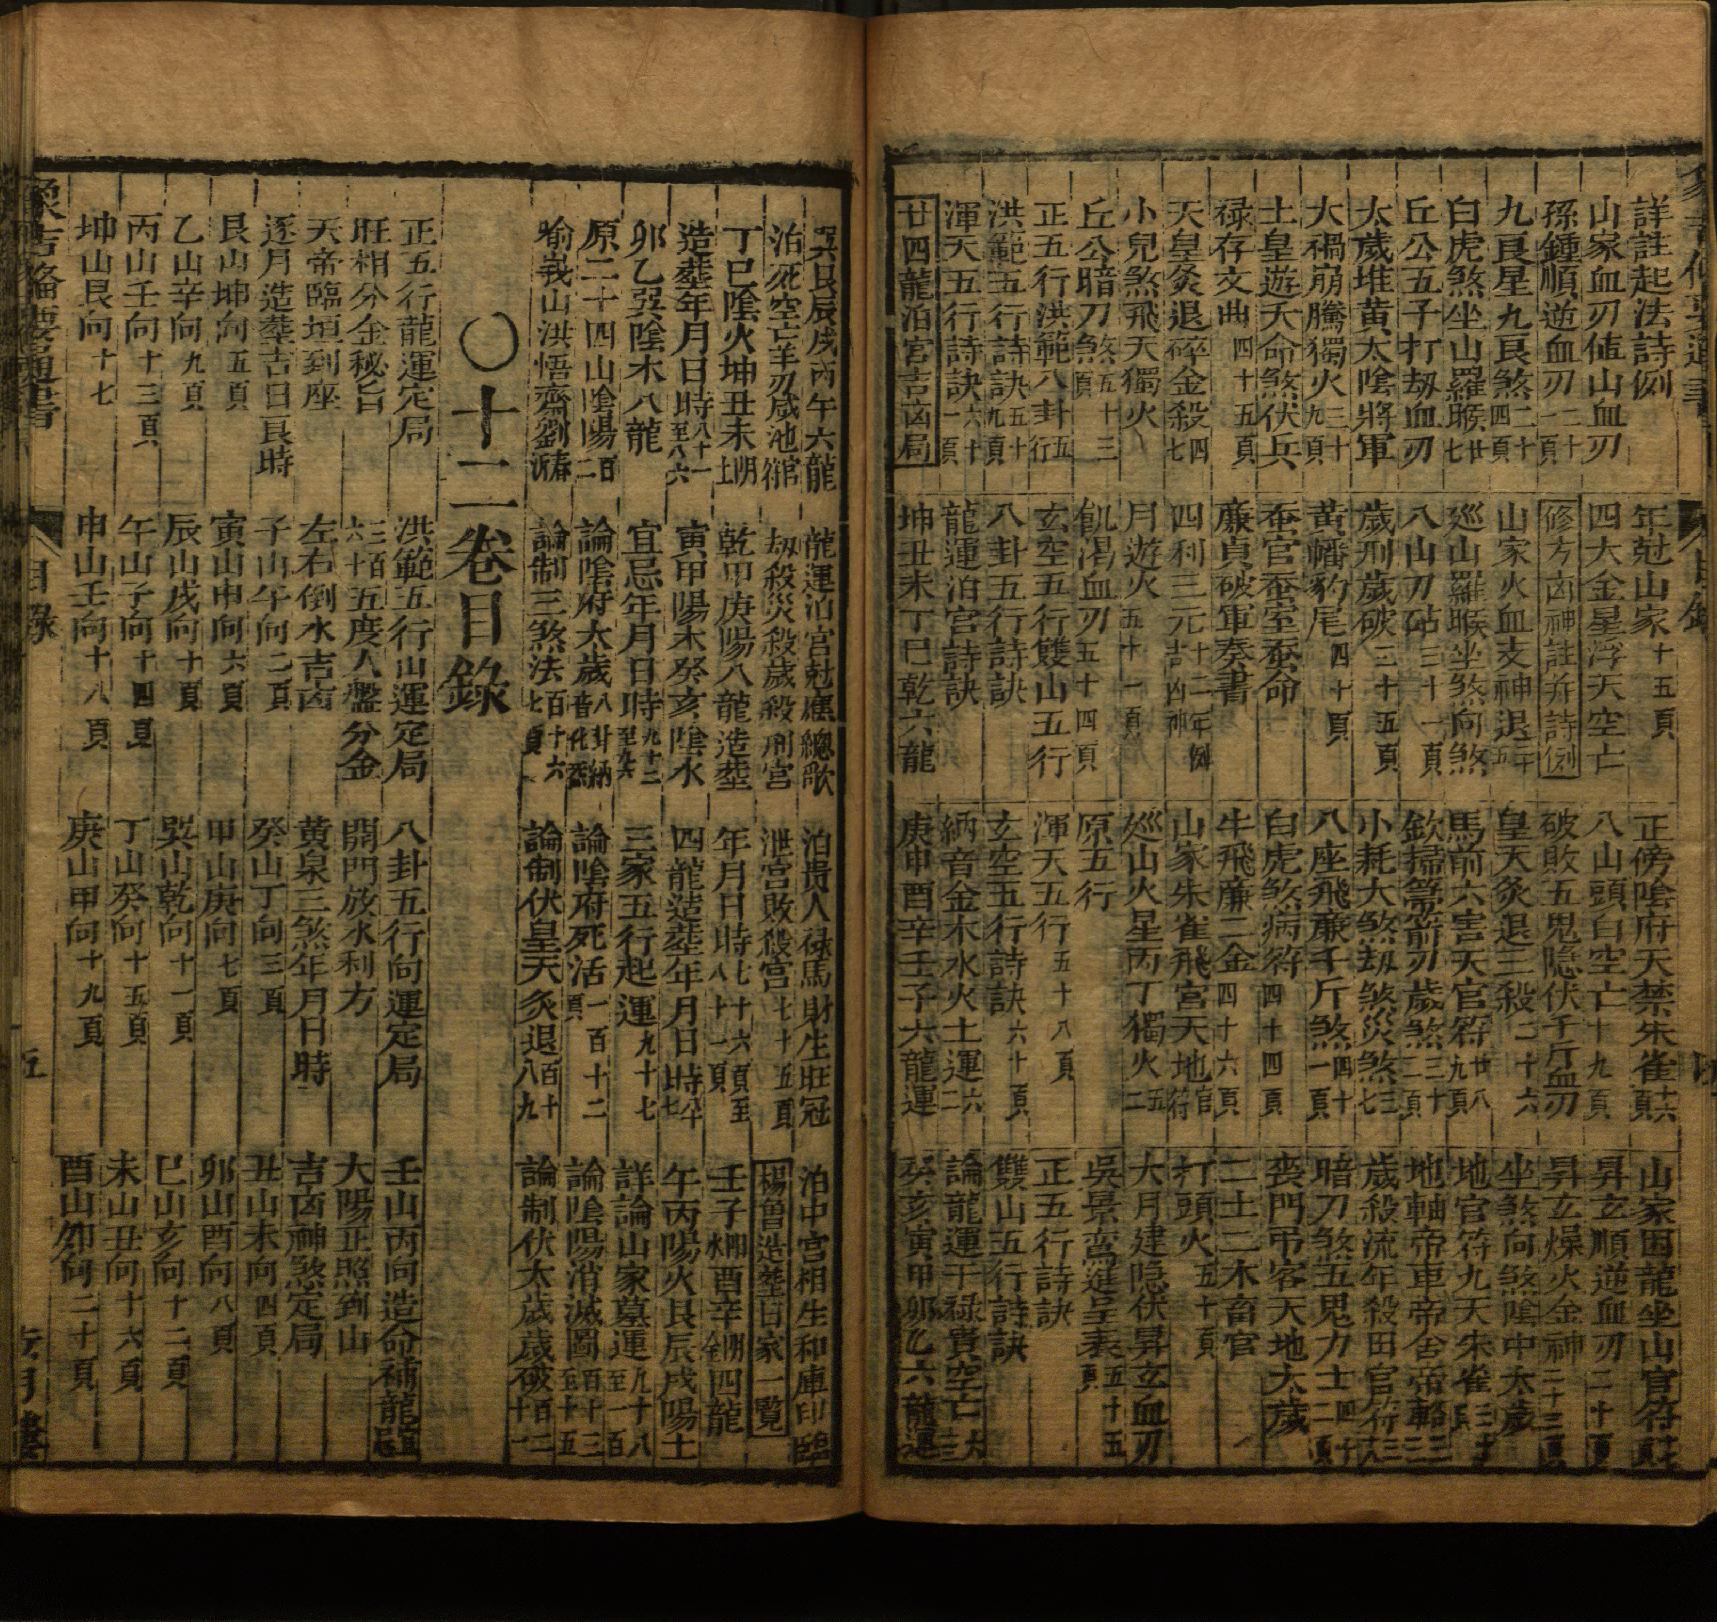 詳註起法詩例 年尅山家十五頁 正傍陰府天禁朱雀 山家困龍坐山官符
山家血刃値山血刃 四大金星浮天空亡 八山頭白空亡十九頁 昇玄順逆血刃二十頁
孫鍾順逆血刃二十一頁 修方凶神註并詩例 破敗五鬼隐伏千斤血刃 昇玄燥火金神二十三頁
九良星九良煞二十四頁 山家火血支神退 皇天灸退三殺二十六 坐煞向煞陰中太歲
白虎煞坐山羅睺廿七 廵山羅睺坐煞向煞 馬前六害天官符廿八九頁 地官符九天朱雀三十頁
丘公五子打刼血刃 八山刃砧三十一頁 欽掃箒箭刃歲煞三十二頁 地軸帝車帝舍帝輅
太歲堆黄太陰將軍 歲刑歲破三十五頁 小耗大煞刼煞災煞 歲殺流年殺田官符
大禍崩騰獨火三十九頁 黄幡豹尾四十頁 八座飛廉千斤煞四十一頁 暗刀煞五鬼力士四十二頁
土皇遊天命煞伏兵 蚕官蚕室蚕命 白虎煞病符四十四頁 喪門弔客天地太歲
禄存文曲四十五頁 廉貞破軍奏書 牛飛廉三金四十六頁 二土二木畜官
天皇灸退碎金殺四七 四利三元吉凶神十二年例 山家朱雀飛宮天地官符 打頭火五十頁
小兒煞飛天獨火 月遊火五十一頁 廵山火星丙丁獨火五二 大月建隐伏昇玄血刃
丘公暗刀煞五十三頁 飢渴血刃五十四頁 原五行 吳景鸞進呈表五十五頁
正五行洪範八卦五行 玄空五行雙山五行 渾天五行五十八頁 正五行詩訣
洪範五行詩訣五十九頁 八卦五行詩訣 玄空五行詩訣六十頁 雙山五行詩訣
渾天五行詩訣六十一頁 龍運泊宮詩訣 納音金木水火土運六二 論龍運干禄貴空亡
廿四龍泊宮吉凶局 坤丑未丁巳乾六龍 庚申酉辛壬子六龍運 癸亥寅甲卯乙六龍運
巽艮辰戌丙午六龍 龍運泊宮尅應總歌 泊貴人禄馬財生旺冠 泊中宮相生和庫印臨
泊死空亡羊刃咸池 刼殺災殺歲殺刑宮 泄宮敗殺宮七十五頁 楊曾造塟日家一覽
丁巳陰火坤丑未 乾甲庚陽八龍造塟 年月日時七十六頁至八十一頁 壬子酉辛四龍
造塟年月日時八十一至八六 寅甲陽木癸亥陰水 四龍造塟年月日時 午丙陽火艮辰戌陽土
卯乙巽陰木八龍 宜忌年月日時九十二至九六 三家五行起運九十七 詳論山家墓運九十八至一百
原二十四山陰陽 論陰府太歲八卦納音化煞 論陰府死活一百十二頁 論陰陽消滅圖百十三至十五
喻峩山洪悟齋劉 論制三煞法百十六七頁 論制伏皇天灸退百十八九 論制伏太歲歲破
〇十二卷目錄
正五行龍運定局 洪範五行山運定局 八卦五行向運定局 壬山丙向造命補龍
旺相分金秘旨 三百六十五度人盤分金 開門放水利方 太陽正照到山
天帝臨垣到座 左右倒水吉凶 黄泉三煞年月日時 吉凶神煞定局
逐月造塟吉日良時 子山午向二頁 癸山丁向三頁 丑山未向四頁
艮山坤向五頁 寅山申向六頁 甲山庚向七頁 卯山酉向八頁
乙山辛向九頁 辰山戌向十頁 巽山乾向十一頁 巳山亥向十二頁
丙山壬向十三頁 午山子向十四頁 丁山癸向十五頁 未山丑向十六頁
坤山艮向十七 申山壬向十八頁 庚山甲向十九頁 酉山卯向二十頁
象吉備要通書 目錄 五